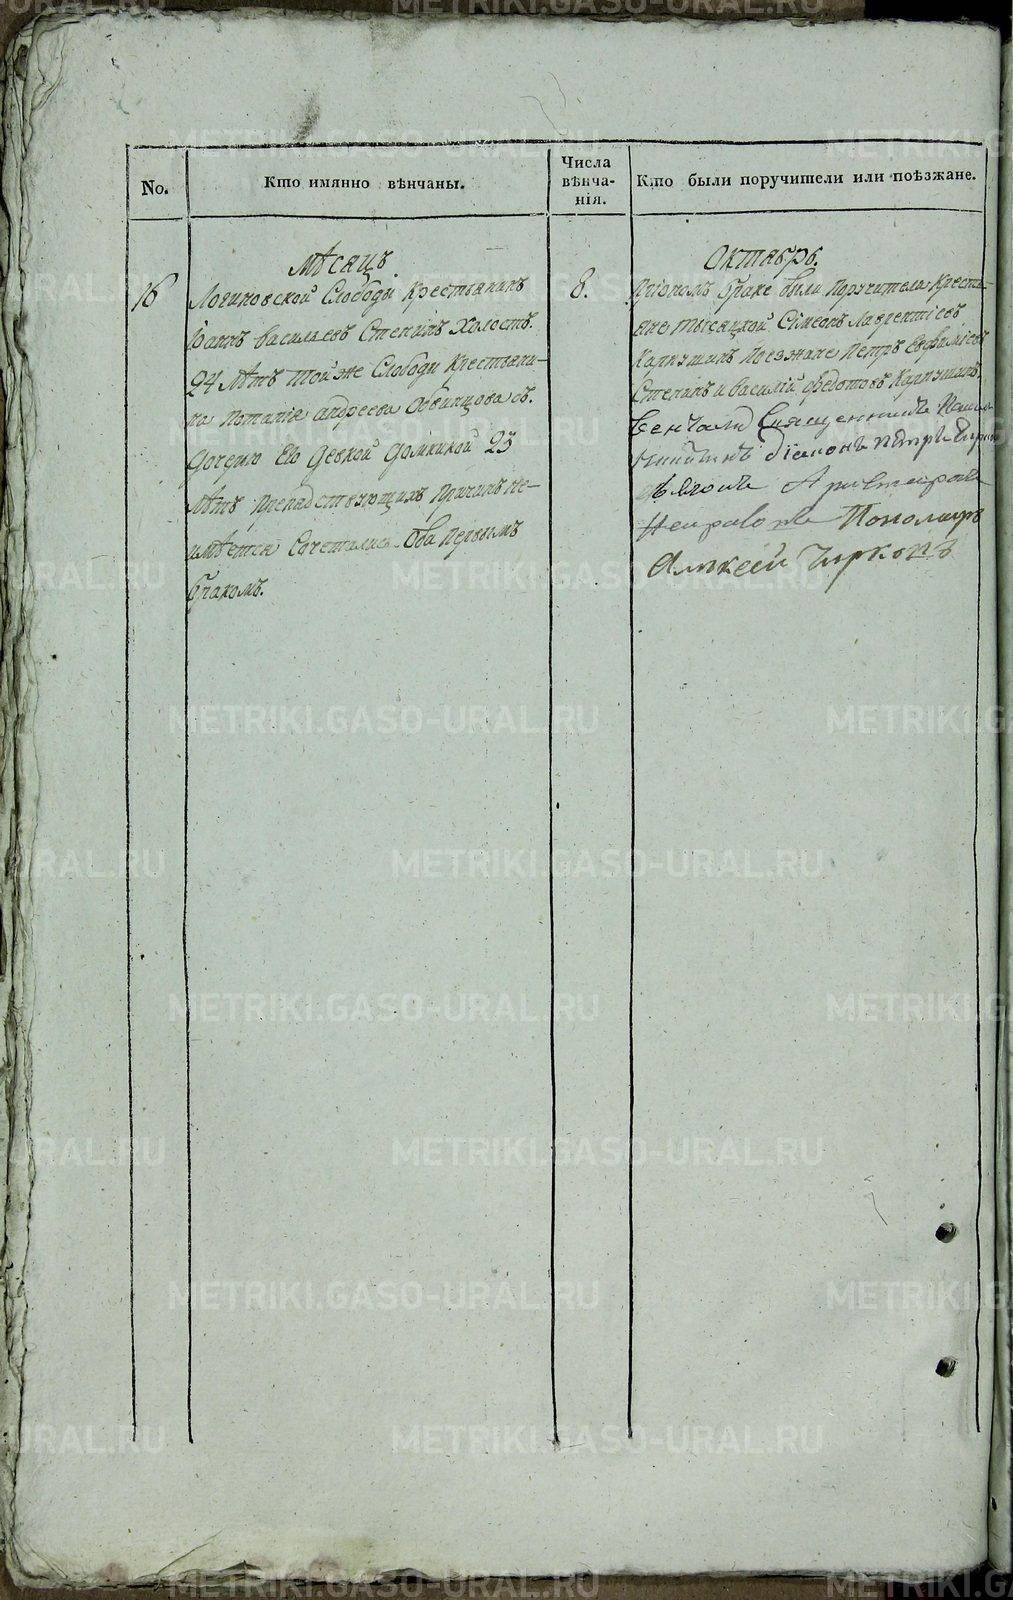 No.
Кто имянно вѣнчаны.
Числа
вѣнча-
нія.
Кто были поручители или поѣзжане.
Мѣсяцъ
Октябрь.
16
Логиновской Слободы Крестьянинъ
Иоаннъ васильевъ Стенинъ Холостъ.
24 лѣтъ той же Слободы Крестьяни-
на Потапія андреева Обвинцова съ.
Дочерью Его Девкой Домникой 23
лѣтъ препядствующихъ причинъ не-
имѣется Сочетились Оба Первымъ
бракомъ.
8.
браке были Поручители Кресть-
яне тысяцкой Сімеонъ Лаврентіевъ
Карпушинъ Поезжане Петръ Евфиміевъ
Степанъ и василій Федотовъ Карпушинъ.
Венчали Священникъ
діаконъ Петръ
Пономарь
Алексей Чирковъ
METRIKI.GASO-URAL.RU